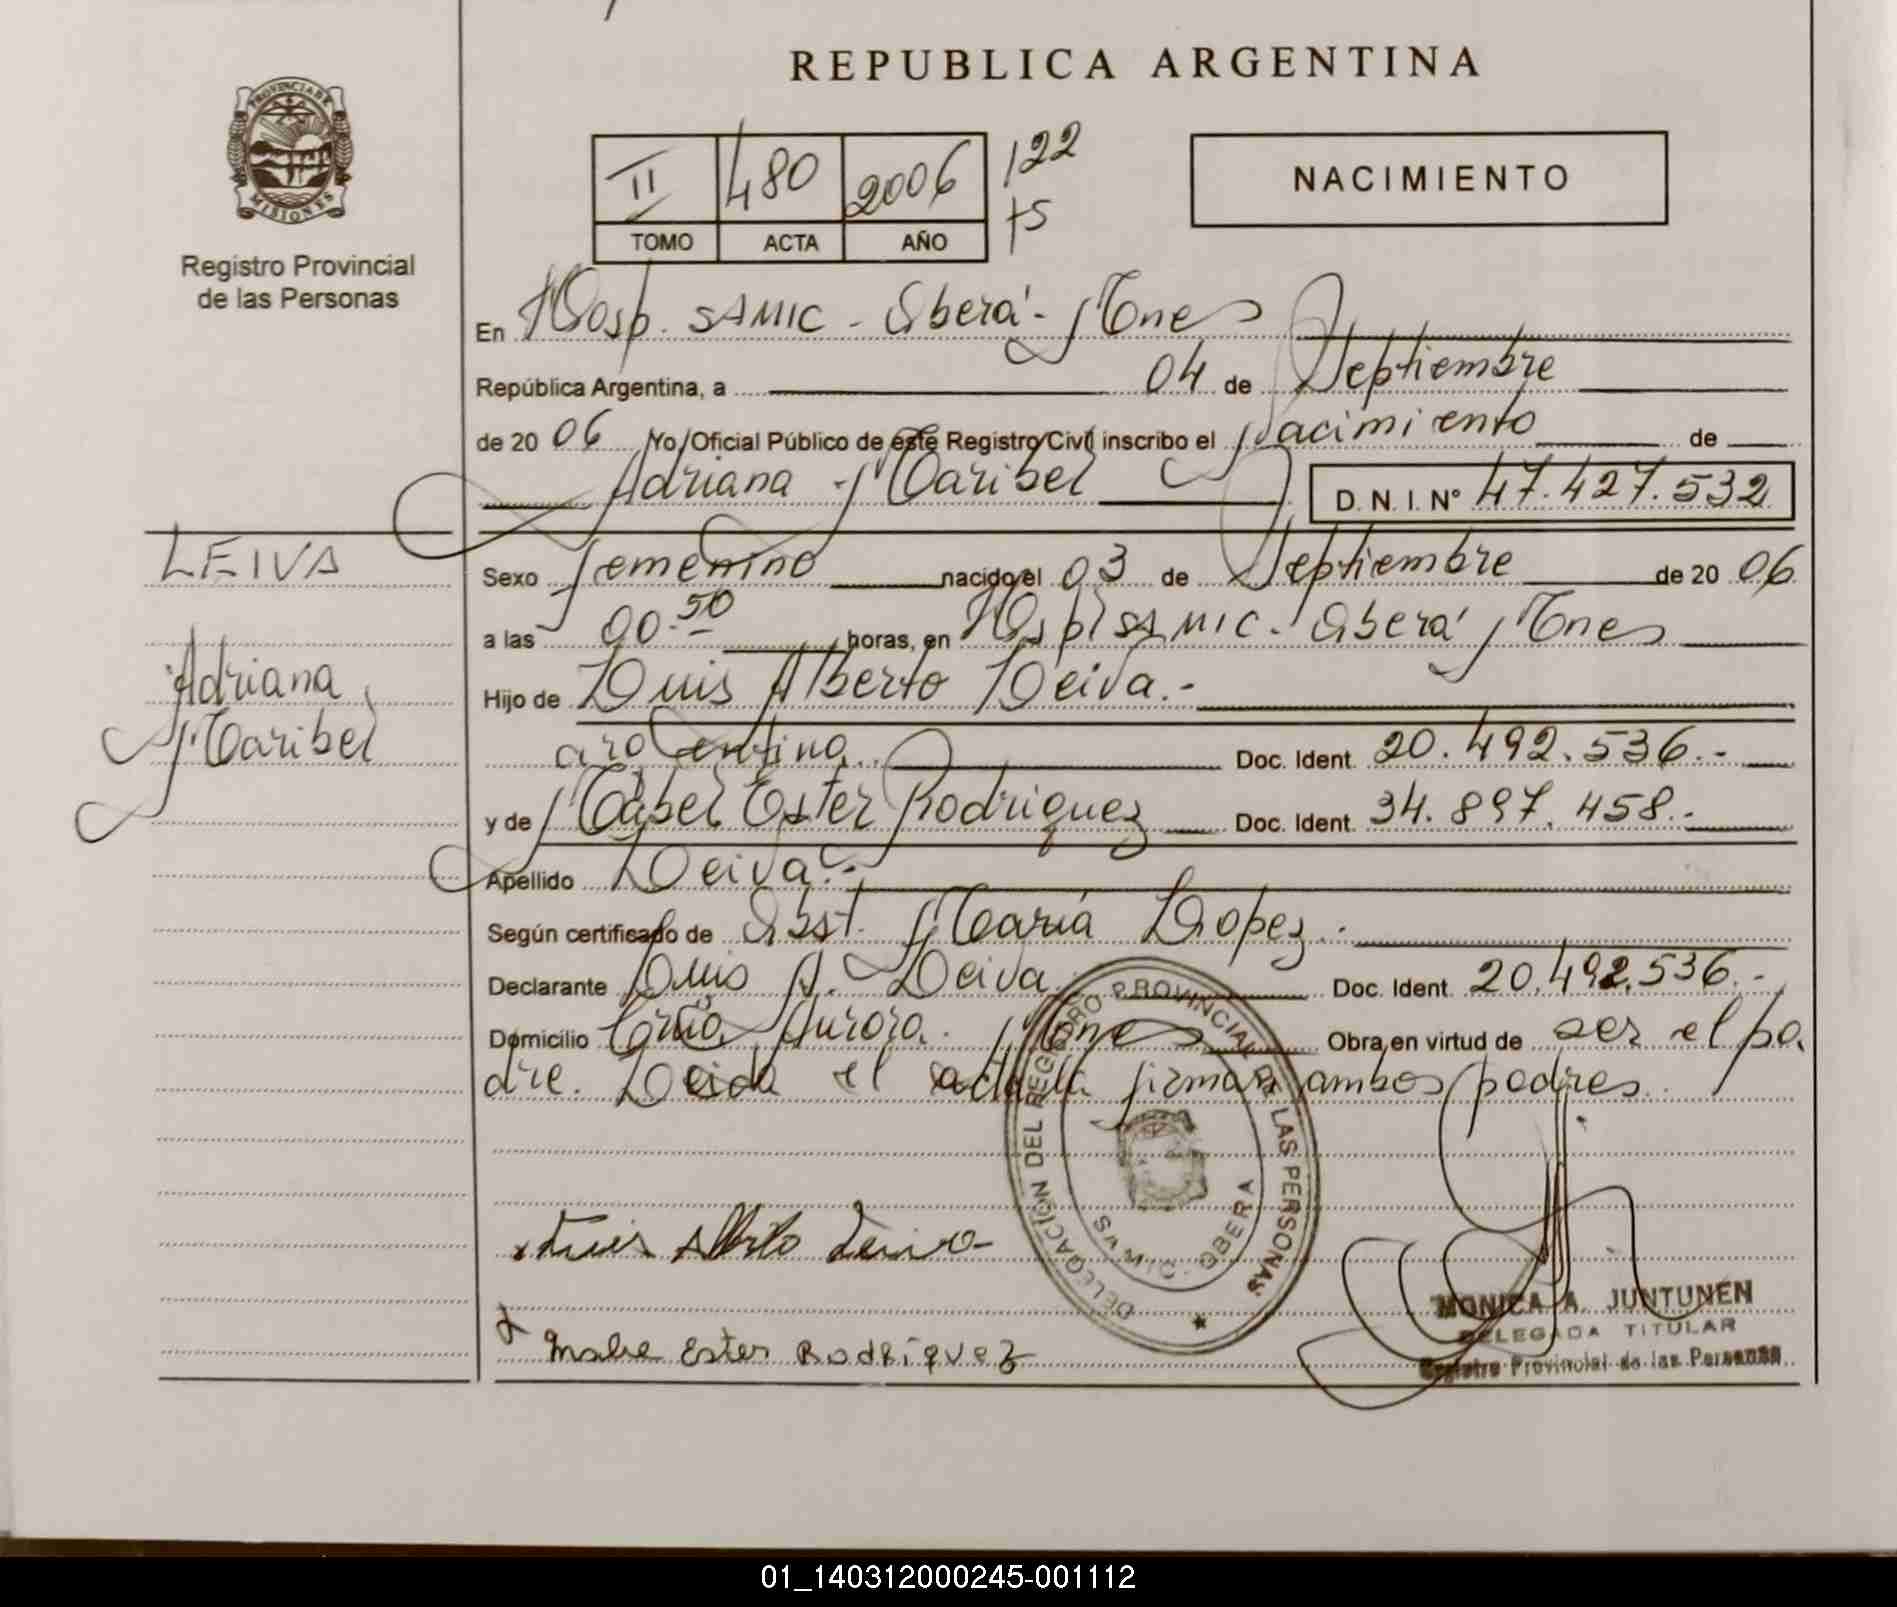 REPUBLICA ARGENTINA
PROVINCIA DE
MISIONES
Registro Provincial
de las Personas
II 480 2006 122
TOMO ACTA AÑO
NACIMIENTO
En Hosp. SAMIC - Oberá - Mnes
República Argentina, a 04 de Septiembre
de 20 06 Yo, Oficial Público de este Registro Civil inscribo el Nacimiento de
Adriana Maribel D. N. I. N° 47.427.532
LEIVA
Adriana
Maribel
Sexo femenino nacido el 03 de Septiembre de 20 06
a las 00.50 horas, en Hospl SAMIC - Oberá Mnes
Hijo de Luis Alberto Leiva.-
argentino Doc. Ident. 20.492.536.-
y de Mabel Ester Rodriguez Doc. Ident. 34.897.458.-
Apellido Leiva.-
Según certificado de Obst. María Lopez.-
Declarante Luis A. Leiva Doc. Ident. 20.492.536.-
Domicilio Aurora. Mnes Obra en virtud de ser el pa
dre. Leida el acta la firman ambos padres.
DELEGACION DEL REGISTRO PROVINCIAL DE LAS PERSONAS
S.A.M.I.C. - OBERA
Luis Alberto Leiva
Mabe Ester Rodriguez
MONICA A. JUNTUNEN
DELEGADA TITULAR
Registro Provincial de las Personas
01_140312000245-001112